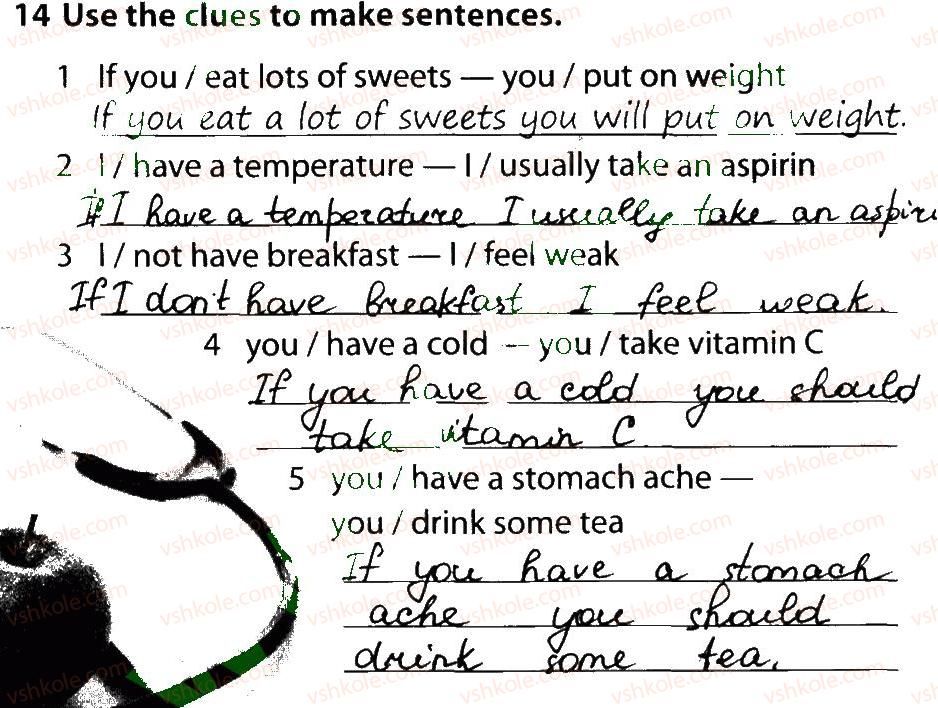 14 Use the clues to make sentences.
1 If you / eat lots of sweets — you / put on weight
If you eat a lot of sweets you will put on weight.
2 I / have a temperature — I / usually take an aspirin
If I have a temperature I usually take an aspiri
3 I / not have breakfast — I / feel weak
If I don't have breakfast I feel weak.
4 you / have a cold — you / take vitamin C
If you have a cold you should
take vitamin C
5 you / have a stomach ache —
you / drink some tea
If you have a stomach
ache you should
drink some tea.
vshkole.com